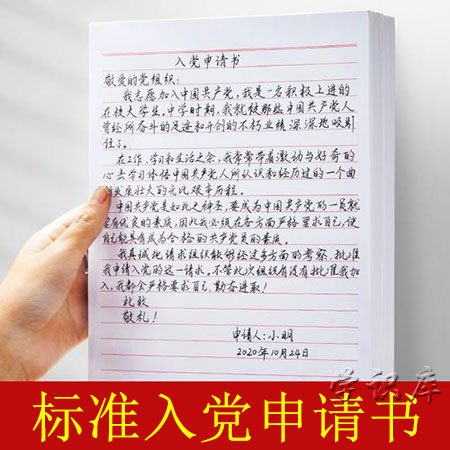 入党申请书
敬爱的党组织:
我志愿加入中国共产党,我是一名积极上进的
在校大学生。中学时期,我就被那些中国共产党人
曾经所奋斗的足迹和开创的不朽业绩深深地吸引
住了。
在工作、学习和生活之余,我常常带着激动与好奇的
心去学习体悟中国共产党人所认识和经历过的一个曲
成长壮大的无比艰辛历程。
中国共产党是如此之神圣,要成为中国共产党的一员就
有优良的素质,因此我必须在各方面严格要求自己,使
自己能具有成为合格的共产党员的素质。
我真诚地请求组织能够经过多方面的考察,批准
我申请入党的这一请求。不管此次组织有没有批准我加
入,我都会严格要求自己,勤奋进取!
此致
敬礼!
申请人:小明
2020年10月24日
学识库
标准入党申请书